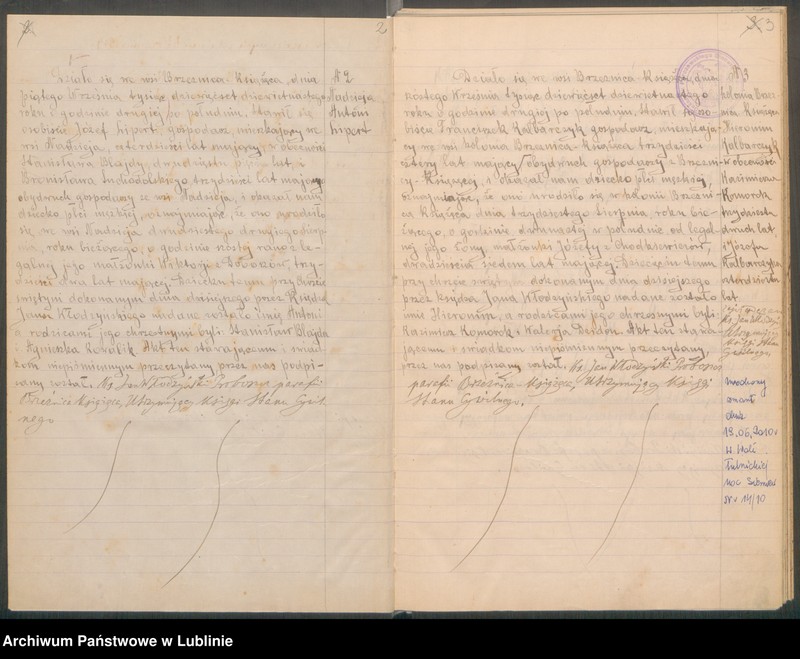 2
Działo się we wsi Brzeźnica-Książęca, dnia
piątego Września tysiąc dziewięćset dziewiętnastego
roku o godzinie drugiej po południu. Stawił się
osobiście Józef Lipert gospodarz, mieszkający we
wsi Nadzieja, czterdzieści lat mający, w obecności
Stanisława Błajdy, lat, i
Bronisława trzydzieści lat mającego
obydwóch gospodarzy ze wsi Nadzieja, i okazał nam
dziecko płci męskiej, oznajmiając, że ono urodziło
się we wsi Nadzieja dwudziestego drugiego Sierp-
nia, roku bieżącego, o godzinie szóstej rano z le-
galnej jego małżonki Wiktorji z trzy-
dzieści dwa lat mającej. Dziecku temu przy Chrzcie
świętym dokonanym dnia dzisiejszego przez Księdza
Jana Włodzyńskiego nadane zostało imię Antoni
a rodzicami jego chrzestnymi byli: Stanisław Błajda
i Agnieszka Kowalik. Akt ten stawającemu i świad-
kom niepiśmiennym przeczytany przez nas podpi-
sany został. Ks. Jan Włodzyński Proboszcz parafji
Brzeźnica Książęca, Utrzymujący księgi Stanu Cywil-
nego
N 2
Nadzieja
Antoni
Lipert
3
Działo się we wsi Brzeźnica-Książęca, dnia
szóstego Września tysiąc dziewięćset dziewiętnastego
roku o godzinie drugiej po południu. Stawił się oso-
biście Franciszek Kalbarczyk gospodarz, mieszkają-
cy we wsi kolonia Brzeźnica-Książęca trzydzieści
cztery lat mający obydwóch gospodarzy z Brzeźni-
cy-Książęcej i okazał nam dziecko płci męskiej,
oznajmiając, że ono urodziło się w kolonii Brzeźni-
ca Książęca dnia trzydziestego Sierpnia, roku bie-
żącego, o godzinie dwunastej w południe, od legal-
nej jego żony, małżonki Józefy z Chodkiewiczów,
dwadzieścia siedem lat mającej. Dziecięciu temu
przy chrzcie świętym dokonanym dnia dzisiejszego
przez księdza Jana Włodzyńskiego nadane zostało
imię Hieronim, a rodzicami jego chrzestnymi byli:
Kazimierz Komorek i Walerja Akt ten stawa-
jącemu i świadkom niepiśmiennym przeczytany,
przez nas podpisany został. Ks. Jan Włodzyński Proboszcz
parafji Brzeźnica Książęca, Utrzymujący Księgi
Stanu Cywilnego.
N 3
kolonia Brzeź-
nica Książęca
Hieronim
Kalbarczyk
W obecności
Kazimierza
Komorek
trzydzieści
dwóch lat
i Józefa
Kalbarczyka
lat
Ks. Jan Włodzyński
Utrzymujący
Księgi Stanu
Cywilnego
niniejszy
zmarł
dnia
19.06.2010r
w. Woli
Tulnickiej
nr 14/10
Archiwum Państwowe w Lublinie